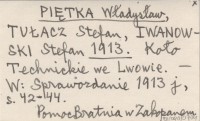 PIĘTKA Władysław,
TUŁACZ Stefan, IWANOW-
SKI Stefan 1913. Koło
Technickie we Lwowie. –
W: Sprawozdanie 1913 j,
s. 42-44.
Pomoc Bratnia w Zakopanem